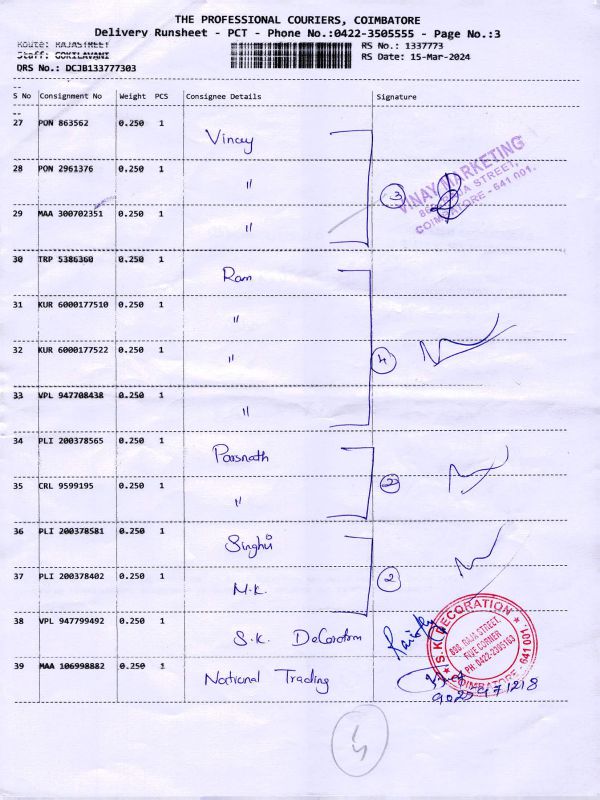 THE PROFESSIONAL COURIERS, COIMBATORE
Delivery Runsheet - PCT - Phone No.:0422-3505555 - Page No.:3
Route: RAJASTREET RS No.: 1337773
Staff: GOKILAVANI RS Date: 15-Mar-2024
DRS No.: DCJB133777303
S No Consignment No Weight PCS Consignee Details Signature
27 PON 863562 0.250 1 Vinay
28 PON 2961376 0.250 1 "
3
VINAY MARKETING
STREET,
COIMBATORE - 641 001.
29 MAA 300702351 0.250 1 "
30 TRP 5386360 0.250 1 Ram
31 KUR 6000177510 0.250 1 "
32 KUR 6000177522 0.250 1 " 4
33 VPL 947708438 0.250 1 "
34 PLI 200378565 0.250 1 Parsnath
35 CRL 9599195 0.250 1 " 2
36 PLI 200378581 0.250 1 Singhvi
37 PLI 200378402 0.250 1 M.K. 2
38 VPL 947799492 0.250 1 S.K. Decoration
S.K. DECORATION
RAJA STREET,
FIVE CORNER
PH: 0422-2395163
COIMBATORE - 641 001.
39 MAA 106998882 0.250 1 National Trading